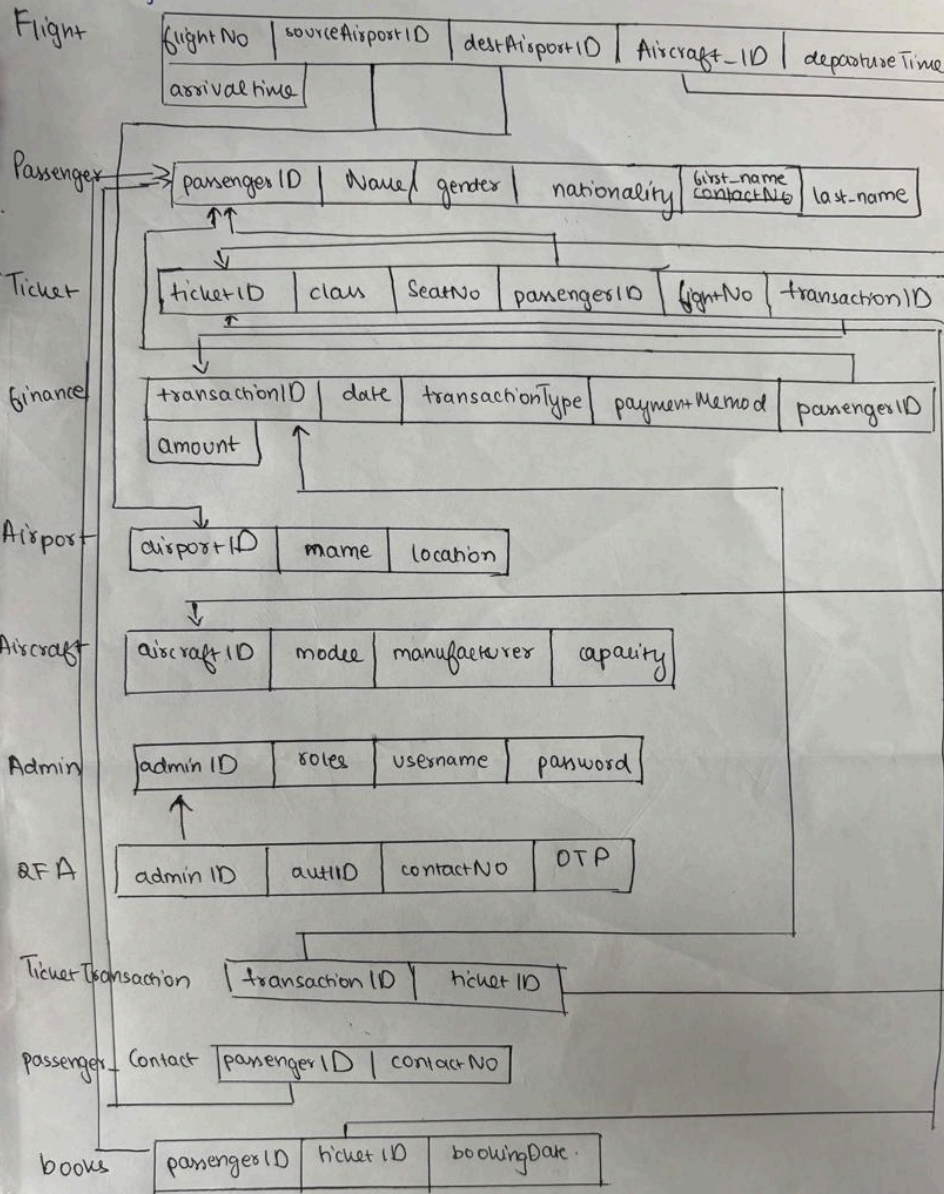 Flight
flightNo sourceAirportID destAirportID Aircraft_ID departureTime
arrivaltime
Passenger
passengerID Name gender nationality first_name contactNo last_name
Ticket
ticketID class SeatNo passengerID flightNo transactionID
finance
transactionID date transactionType paymentMethod passengerID
amount
Airport
airportID name location
Aircraft
aircraftID model manufacturer capacity
Admin
adminID roles username password
2FA
adminID autID contactNO OTP
TicketTransaction transactionID ticketID
passenger_Contact passengerID contactNO
books passengerID ticketID bookingDate.